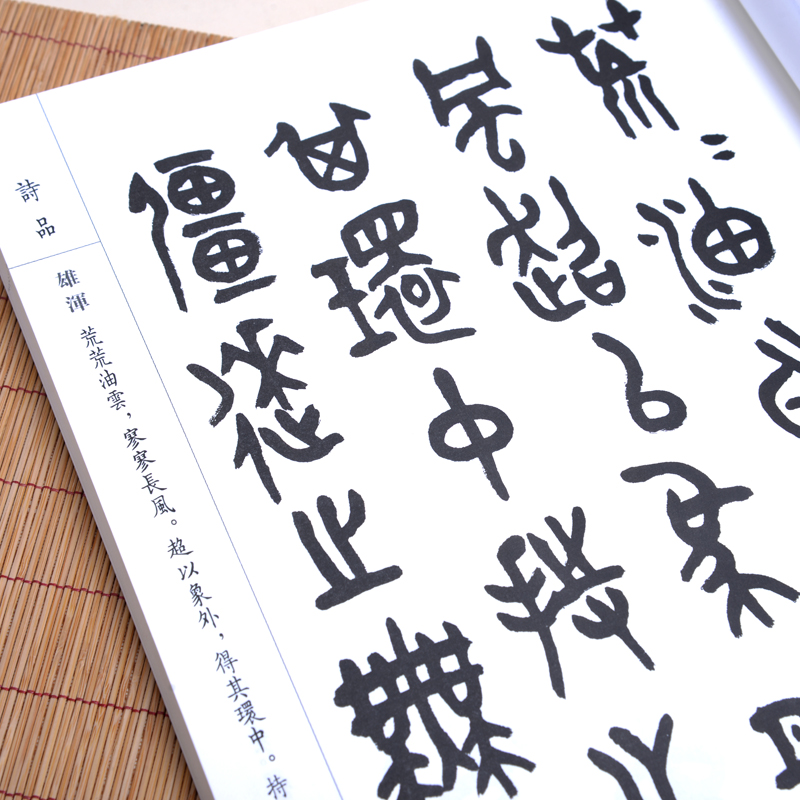 詩品
雄渾 荒荒油雲，寥寥長風。超以象外，得其環中。持
荒〻油
超以象
其環中持
僵逨止無